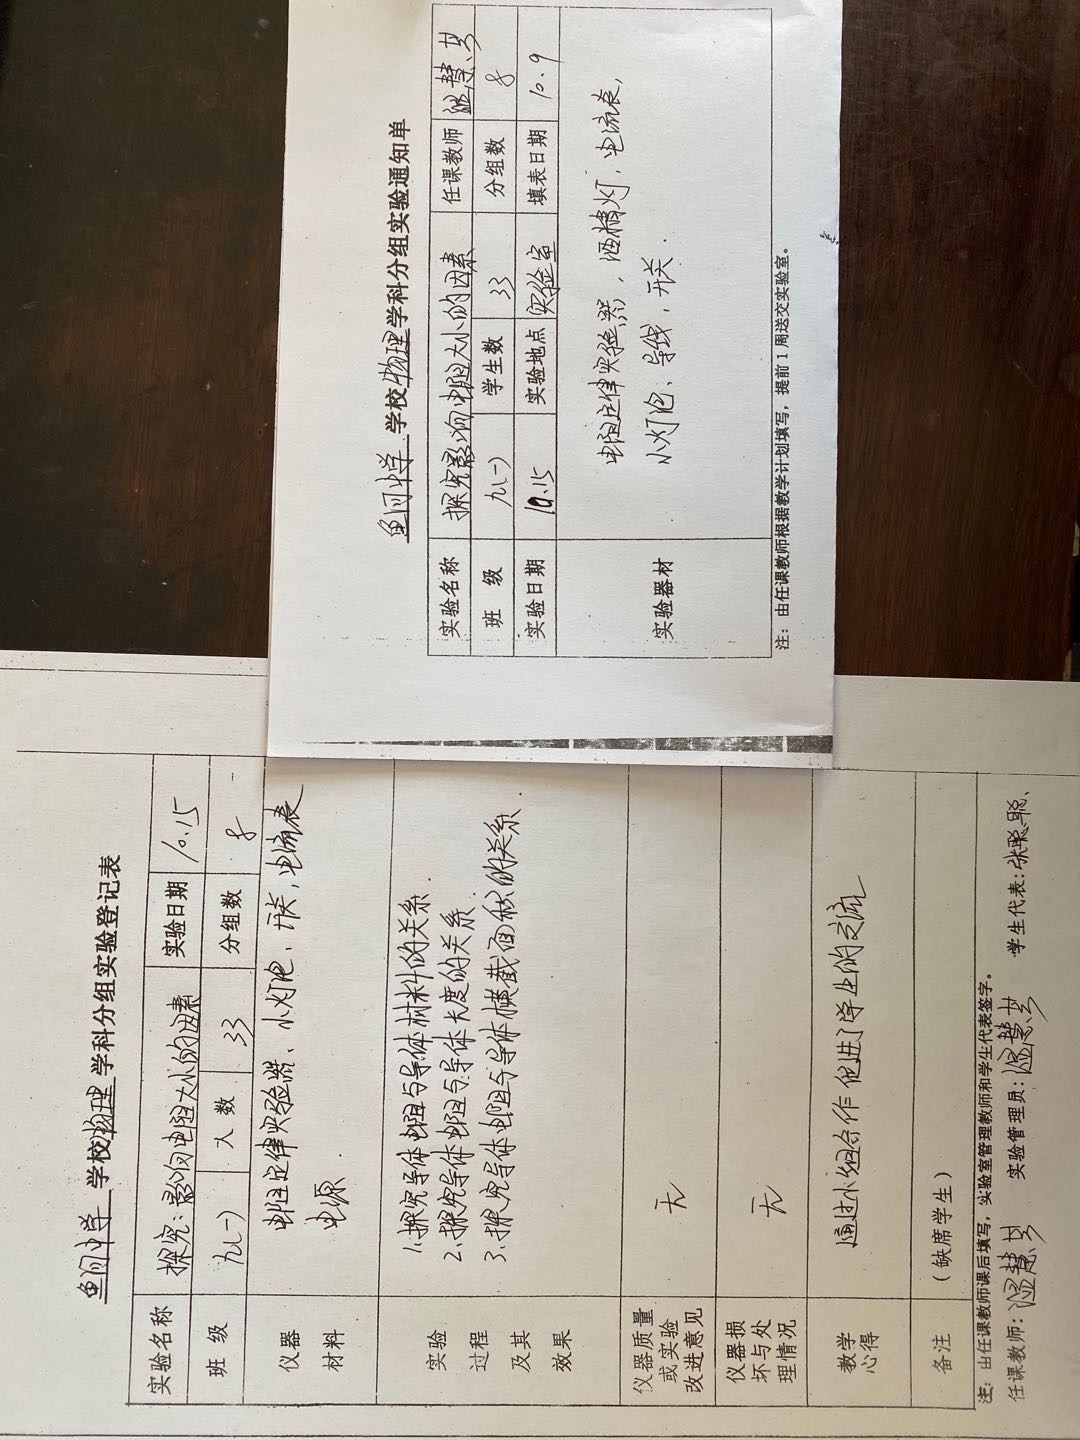 鱼河中学 学校物理学科分组实验通知单
实验名称 探究影响电阻大小的因素 任课教师 温慧芳
班 级 九(一) 学生数 33 分组数 8
实验日期 10.15 实验地点 实验室 填表日期 10.9
实验器材 电阻定律实验器，酒精灯，电流表，
小灯泡、导线，开关
注：由任课教师根据教学计划填写，提前1周送交实验室。
鱼河中学 学校物理学科分组实验登记表
实验名称 探究：影响电阻大小的因素 实验日期 10.15
班 级 九(一) 人 数 33 分组数 8
仪器材料 电阻定律实验器、小灯泡、开关，电流表
电源
实验过程及其效果 1.探究导体电阻与导体材料的关系.
2.探究导体电阻与导体长度的关系.
3.探究导体电阻与导体横截面积的关系.
仪器质量或实验改进意见 无
仪器损坏与处理情况 无
教学心得 通过小组合作促进了学生的交流
备注 (缺席学生)
注：由任课教师课后填写，实验室管理教师和学生代表签字。
任课教师：温慧芳 实验管理员：温慧芳 学生代表：张聪聪、